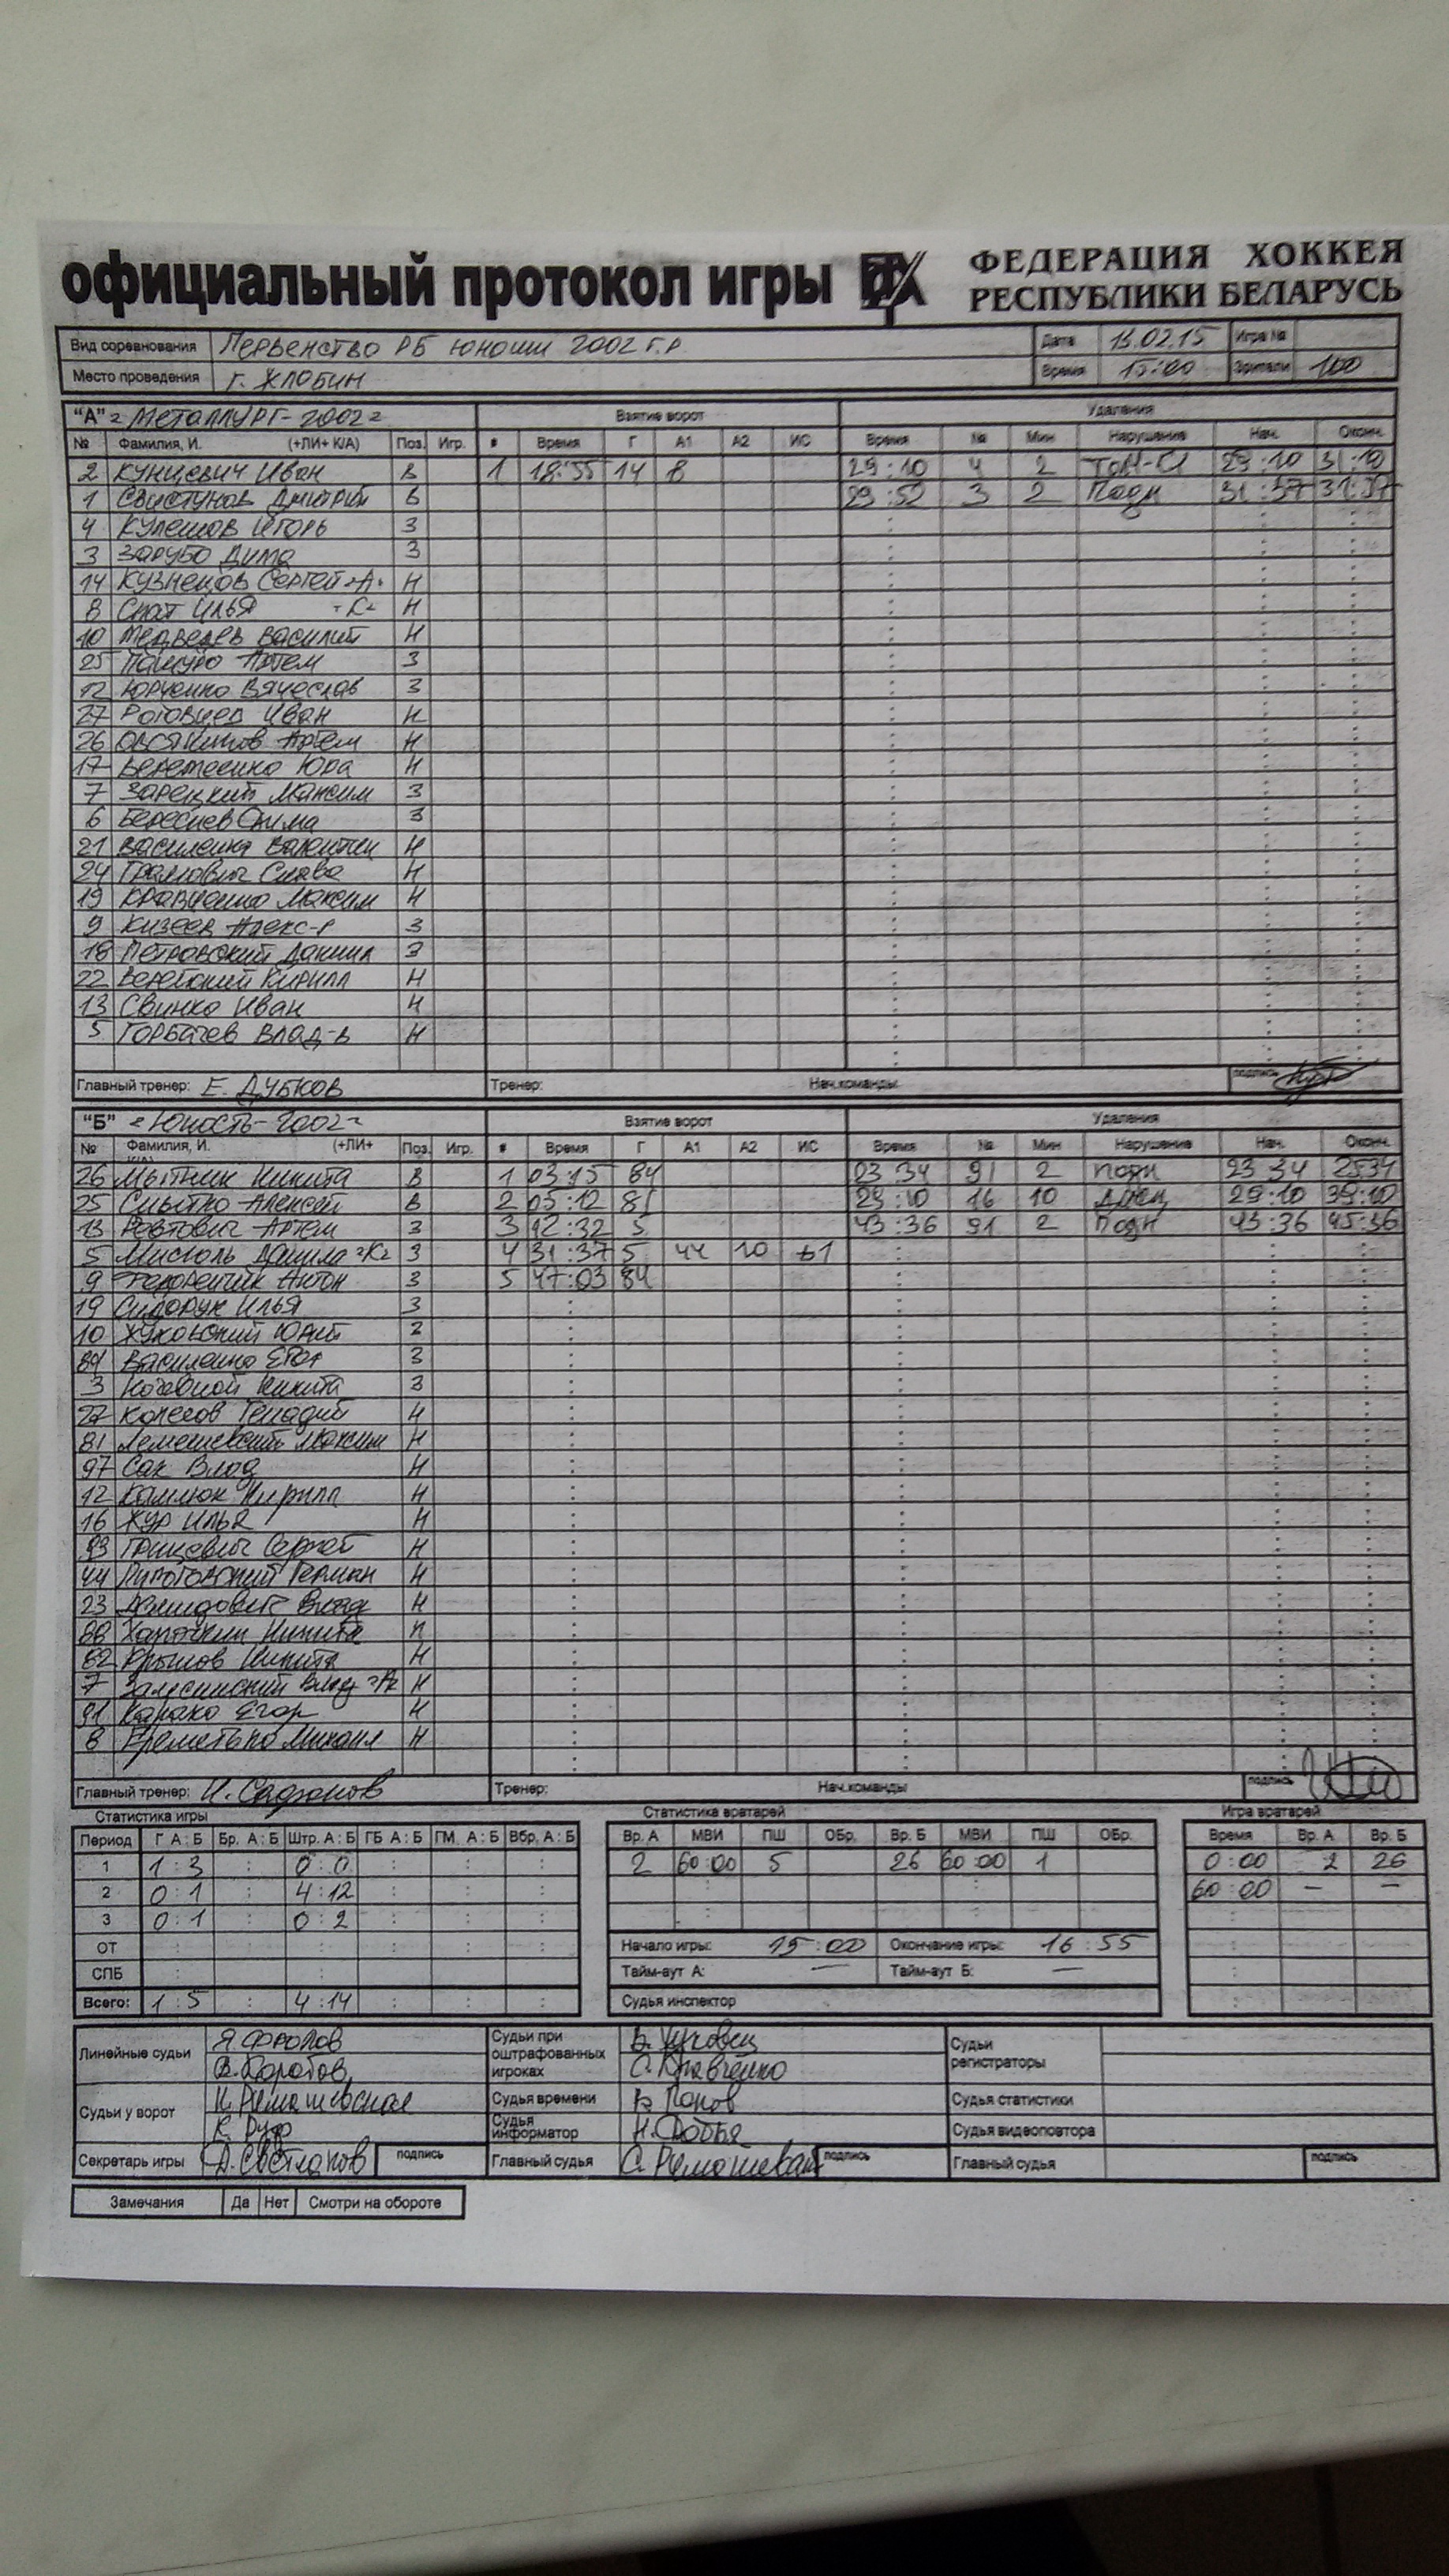 официальный протокол игры ФХ ФЕДЕРАЦИЯ ХОККЕЯ
РЕСПУБЛИКИ БЕЛАРУСЬ
Вид соревнования Первенство РБ юноши 2002 г.р. Дата 13.02.15 Игра №
Место проведения г. Жлобин Время 15:00 Зрители 100
"А" "Металлург-2002" Взятие ворот Удаления
№ Фамилия, И. (+ЛИ+ К/А) Поз. Игр. # Время Г А1 А2 ИС Время № Мин Нарушение Нач. Оконч.
2 Кунцевич Иван В 1 18:55 14 8 29:10 4 2 29:10 31:10
1 Свистунов Дмитрий В 29:52 3 2 Подн 31:37 31:37
4 Кулешов Игорь З
3 Зарубо Дима З
14 Кузнецов Сергей "А" Н
8 Спат Илья "К" Н
10 Медведев Василий Н
25 Пашуро Артем З
12 Юрченко Вячеслав З
27 Роговцев Иван Н
26 Овсянников Артем Н
17 Веремеенко Юра Н
7 Зарецкий Максим З
6 Береснев Дима З
21 Василенко Валентин Н
24 Громович Слава Н
19 Кравченко Максим Н
9 Кизеев Алекс-р З
18 Петровский Даниил З
22 Кирилл Н
13 Свинко Иван Н
5 Горбачев Влад-в Н
Главный тренер: Е. Дубков Тренер: Нач.команды подпись
"Б" "Юность-2002" Взятие ворот Удаления
№ Фамилия, И. (+ЛИ+ К/А) Поз. Игр. # Время Г А1 А2 ИС Время № Мин Нарушение Нач. Оконч.
26 Мытник Никита В 1 03:15 84 03 34 91 2 подн 23 34 2534
25 Снытко Алексей В 2 05:12 81 29:10 16 10 29:10 39:10
13 Ревтович Артем З 3 12:32 5 43:36 91 2 Подн 43:36 45:36
5 Мисюль Данила "К" З 4 31:37 5 44 10 +1
9 Федоренчик Антон З 5 47:03 84
19 Сидорук Илья З
10 Жуковский Юрий З
84 Василенко Егор З
3 Кочевной Никита З
27 Колесов Генадий Н
81 Лемешевский Максим Н
97 Сак Влад Н
12 Камлюк Кирилл Н
16 Жур Илья Н
93 Грицевич Сергей Н
44 Пилотовский Герман Н
23 Демидович Влад Н
88 Харочкин Никита Н
62 Крылов Никита Н
7 Залесинский Влад "А" Н
91 Карако Егор Н
8 Еремотько Михаил Н
Главный тренер: И. Сафонов Тренер: Нач.команды подпись
Статистика игры Статистика вратарей Игра вратарей
Период Г А:Б Бр. А:Б Штр. А:Б ГБ А:Б ГМ. А:Б Вбр. А:Б Вр. А МВИ ПШ ОБр. Вр. Б МВИ ПШ ОБр. Время Вр. А Вр. Б
1 1:3 : 0:0 : : : 2 60:00 5 26 60:00 1 0:00 2 26
2 0:1 : 4:12 : : : 60:00 — —
3 0:1 : 0:2 : : :
ОТ Начало игры: 15:00 Окончание игры: 16:55
СПБ Тайм-аут А: — Тайм-аут Б: —
Всего: 1:5 : 4:14 : : : Судья инспектор
Линейные судьи Я. Фролов Судьи при оштрафованных игроках В. Жуковец Судьи регистраторы
В. Коротов С. Кравченко
Судьи у ворот Н. Ремашевская Судья времени В. Попов Судья статистики
К. Руф Судья информатор Н. Судья видеоповтора
Секретарь игры Д. Светлаков подпись Главный судья С. Ремашевский подпись Главный судья подпись
Замечания Да Нет Смотри на обороте